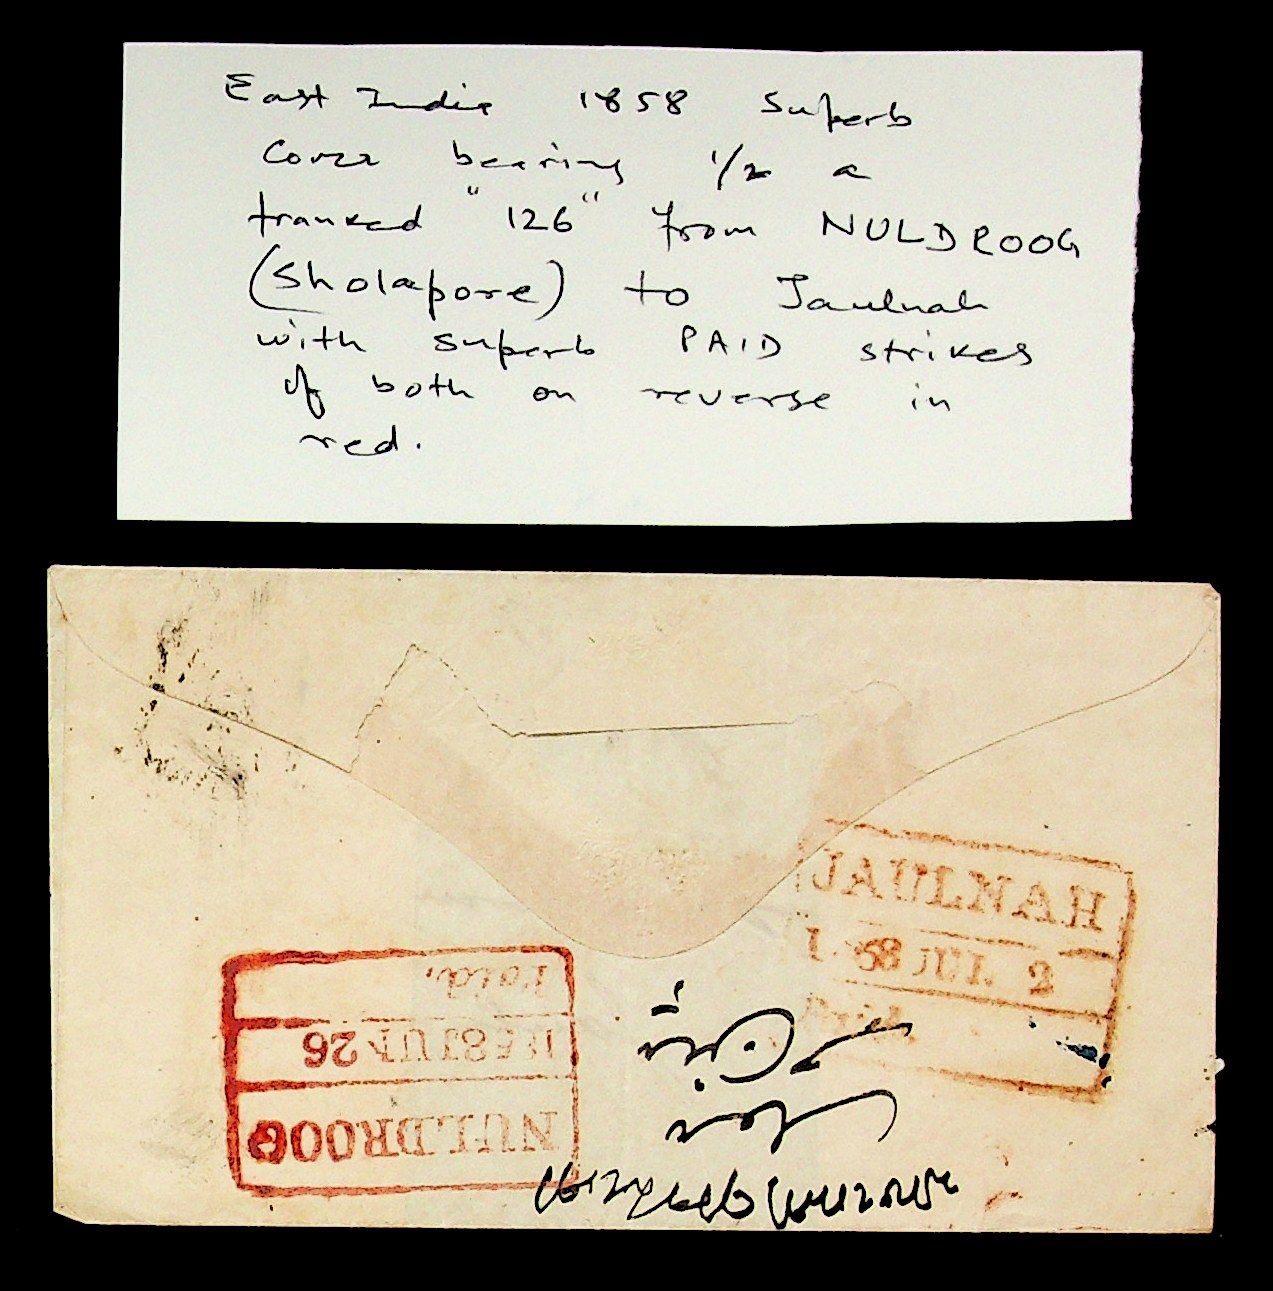 East India 1858 Superb
Cover bearing 1/2 a
franked "126" from NULDROOG
(Sholapore) to Jaulnah
with superb PAID strikes
of both on reverse in
red.
JAULNAH
58 JUL 2
Paid.
1858 JUN 26
NULDROOG